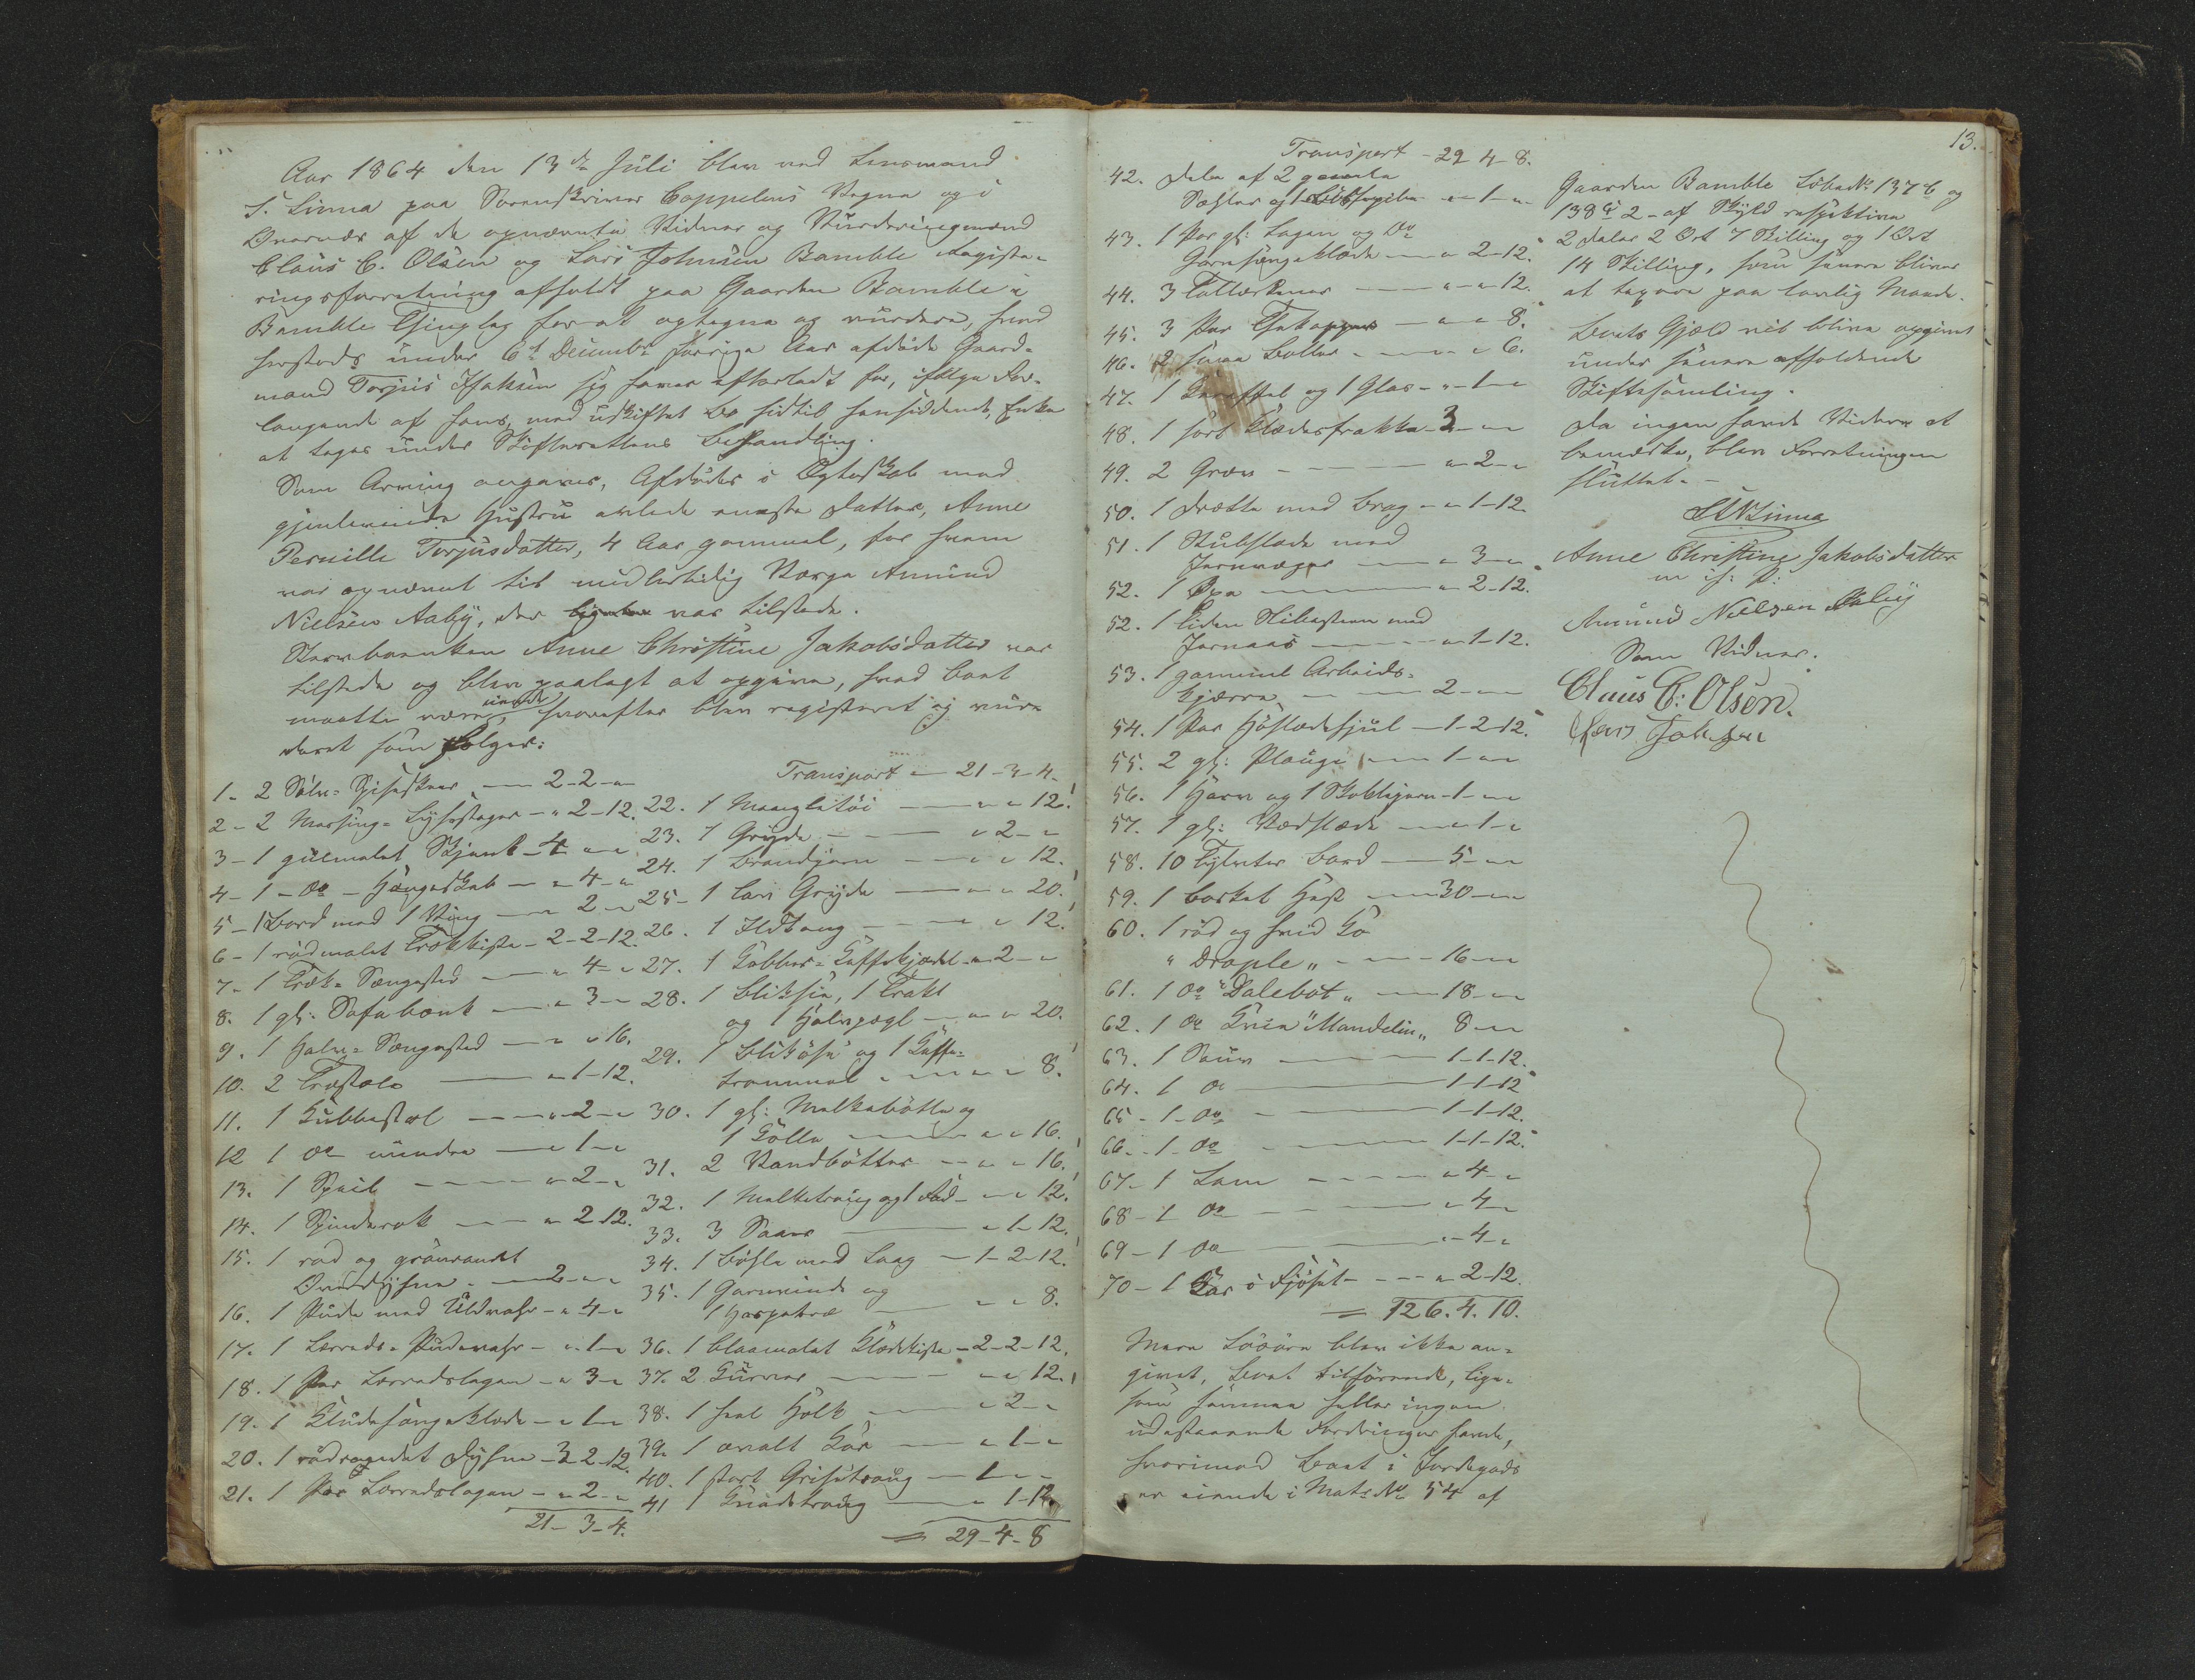 Aar 1864 den 13de Juli blev ved Lensmand
S. Linna paa Sorenskriver Coppelens Vegne og i
Overvær af de opnævnte Vidner og Vurderingsmænd
Claus C. Olsen og Lars Johnsen Bamble Registe-
ringsforretning afholdt paa Gaarden Bamble i
Bamble Thinglag for at optegne og vurdere, hvad
hersteds under 6te Decembr forrige Aar afdøde Gaard-
mand Torjus Isaksen sig haver efterladt for, ifølge For-
langende af hans, med uskiftet Bo hidtil hensiddende, Enke
at tages under Skifterettens Behandling.
Som Arving angaves, Afdødes i Ægteskab med
gjenlevende Hustru avlede eneste Datter, Anne
Pernille Torjusdatter, 4 Aar gammel, for hvem
var opnævnt til midlertidig Værge Amund
Nielsen Aaby, der var tilstede.
Stervboenken Anne Christine Jakobsdatter var
tilstede og blev paalagt at opgive, hvad Boet
maatte være eiende, hvorefter blev registeret og vur-
deret som følger:
1- 2 Sølv-Spiseskeer - 2-2-"
2- 2 Messing-Lysestager - " 2-12.
3- 1 guulmalet Skjenk - 4 " "
4- 1 - Do - Hængeskab - " 4 - "
5- 1 Bord med 1 Ving - " 2 - "
6- 1 rødmalet Trækkiste - 2-2-12.
7- 1 Træk-Sængested - " 4 - "
8. 1 gl: Sofabænk - " 3 - "
9. 1 Halv-Sængested - " " 16.
10. 2 Træstole - " 1-12.
11. 1 Kubbestol - " 2 - "
12 1 Do mindre - " 1 - "
13. 1 Speil - " 2 - "
14. 1 Spinderok - " 2 12.
15. 1 rød og grønrandet
Overdyhne - 2 - "
16. 1 Pude med Uldvahr - " 4 - "
17. 1 Lærreds-Pudevahr - " 1 - "
18. 1 Par Lærredslagen - " 3 - "
19. 1 Kludesængeklæde - " 1 - "
20. 1 rødrandet Dyhne - 3 2-12.
21. 1 Par Lærredslagen - " 2 - "
21-3-4.
Transport - 21-3-4-
22. 1 Mangletøi - " " 12.
23. 1 Gryde - " 2 - "
24. 1 Brandjern - " " 12.
25- 1 lav Gryde - " " 20.
26. 1 Ildtang - " " 12.
27. 1 Kobber-Kaffekjædel - " 2 - "
28. 1 Bliksie, 1 Trakt
og 1 Halvpægl - " " 20.
29. 1 Blikøse og 1 Kaffe-
trommel - " " 8.
30. 1 gl: Melkebøtte og
1 Kolle - " " 16.
31. 2 Vandbøtter - " " 16.
32. 1 Melketraug og 1 Fad - " " 12.
33. 3 Saaer - " 1 12.
34. 1 Bøsse med Laag - 1-2-12.
35. 1 Garnvinde og
1 Haspetræ - " " 8.
36. 1 blaamalet Klædekiste - 2-2-12.
37. 2 Kurver - " " 12.
38. 1 heel Holk - " 2 - "
39. 1 ovalt Kar - " 1 - "
40. 1 stort Grisetraug - 1 - "
41 1 Knadetraug - " 1-12.
= 29-4-8
13.
Transport - 29 4 8.
42. Dele af 2 gamle
- " 1 - "
43. 1 Par gl: Lagen og Do
- " 2-12.
44. 3 Tallerkener - " " 12.
45. 3 Par Thekopper - " " 8.
46. 2 smaa Boller - " " 6.
47. 1 Karaffel og 1 Glas - " 1 - "
48. 1 sort Klædesfrakke 3 - "
49. 2 Grev - " 2 - "
50. 1 Drætte med Drag - " 1-12.
51. 1 Stubslæde med
- " 3 - "
52. 1 Øxe - " 2-12.
52. 1 liden Slibesteen med
Jernaas - " 1-12.
53. 1 gammel Arbeids-
kjærre - 2 - "
54. 1 Par Høslædehjul - 1-2-12.
55. 2 gl: Plouge - 1 - "
56. 1 Harv og 1 - 1 - "
57. 1 gl: Vedslæde - " 1 - "
58. 10 Tylvter Bord - 5 - "
59. 1 borket Hest - 30 - "
60. 1 rød og hvid Ko
"Drople" - 16 - "
61. 1 Do "Dalebot" - 18 - "
62. 1 Do Kvie "Mandelin" 8 - "
63. 1 Sauv - 1-1-12.
64. 1 Do - 1-1-12
65- 1- Do - 1-1-12.
66- 1- Do - 1-1-12.
67- 1 Lam - " 4 - "
68- 1 Do - " 4 - "
69- 1 Do - " 4 - "
70- 1 Kar i Fjøset - " 2-12.
= 126.4.10.
Mere Løsøre blev ikke an-
givet, Boet tilhørende, lige-
som samme heller ingen
udestaaende Fordringer havde,
hvorimod Boet i Jordegods
er eiende i Matr No 54 af
Gaarden Bamble Løbe No 137 b og
138 2 - af Skyld respektive
2 Daler 2 Ort 7 Skilling og 1 Ort
14 Skilling, som senere bliver
at taxere paa lovlig Maade.
Boets Gjæld vil blive opgivet
under senere afholdende
Skiftesamling.
Da ingen havde Videre at
bemærke, blev Forretningen
sluttet. -
S Linna
Anne Christine Jakobsdatter
m. ih: P:
Amund Nielsen Aaby
Som Vidner.
Claus C: Olsen.
Lars Johnsen